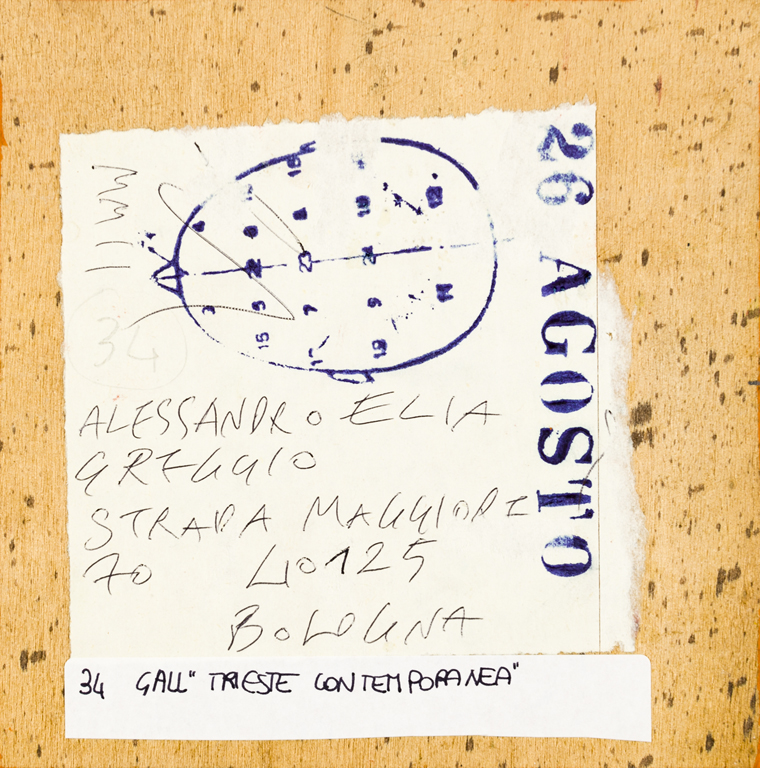 26 AGOSTO
MMII
34
ALESSANDRO ELIA
GREGGIO
STRADA MAGGIORE
70 40125
BOLOGNA
34 GALL "TRIESTE CONTEMPORANEA"
22 23 24
3 5 7 9 11
15 17 19